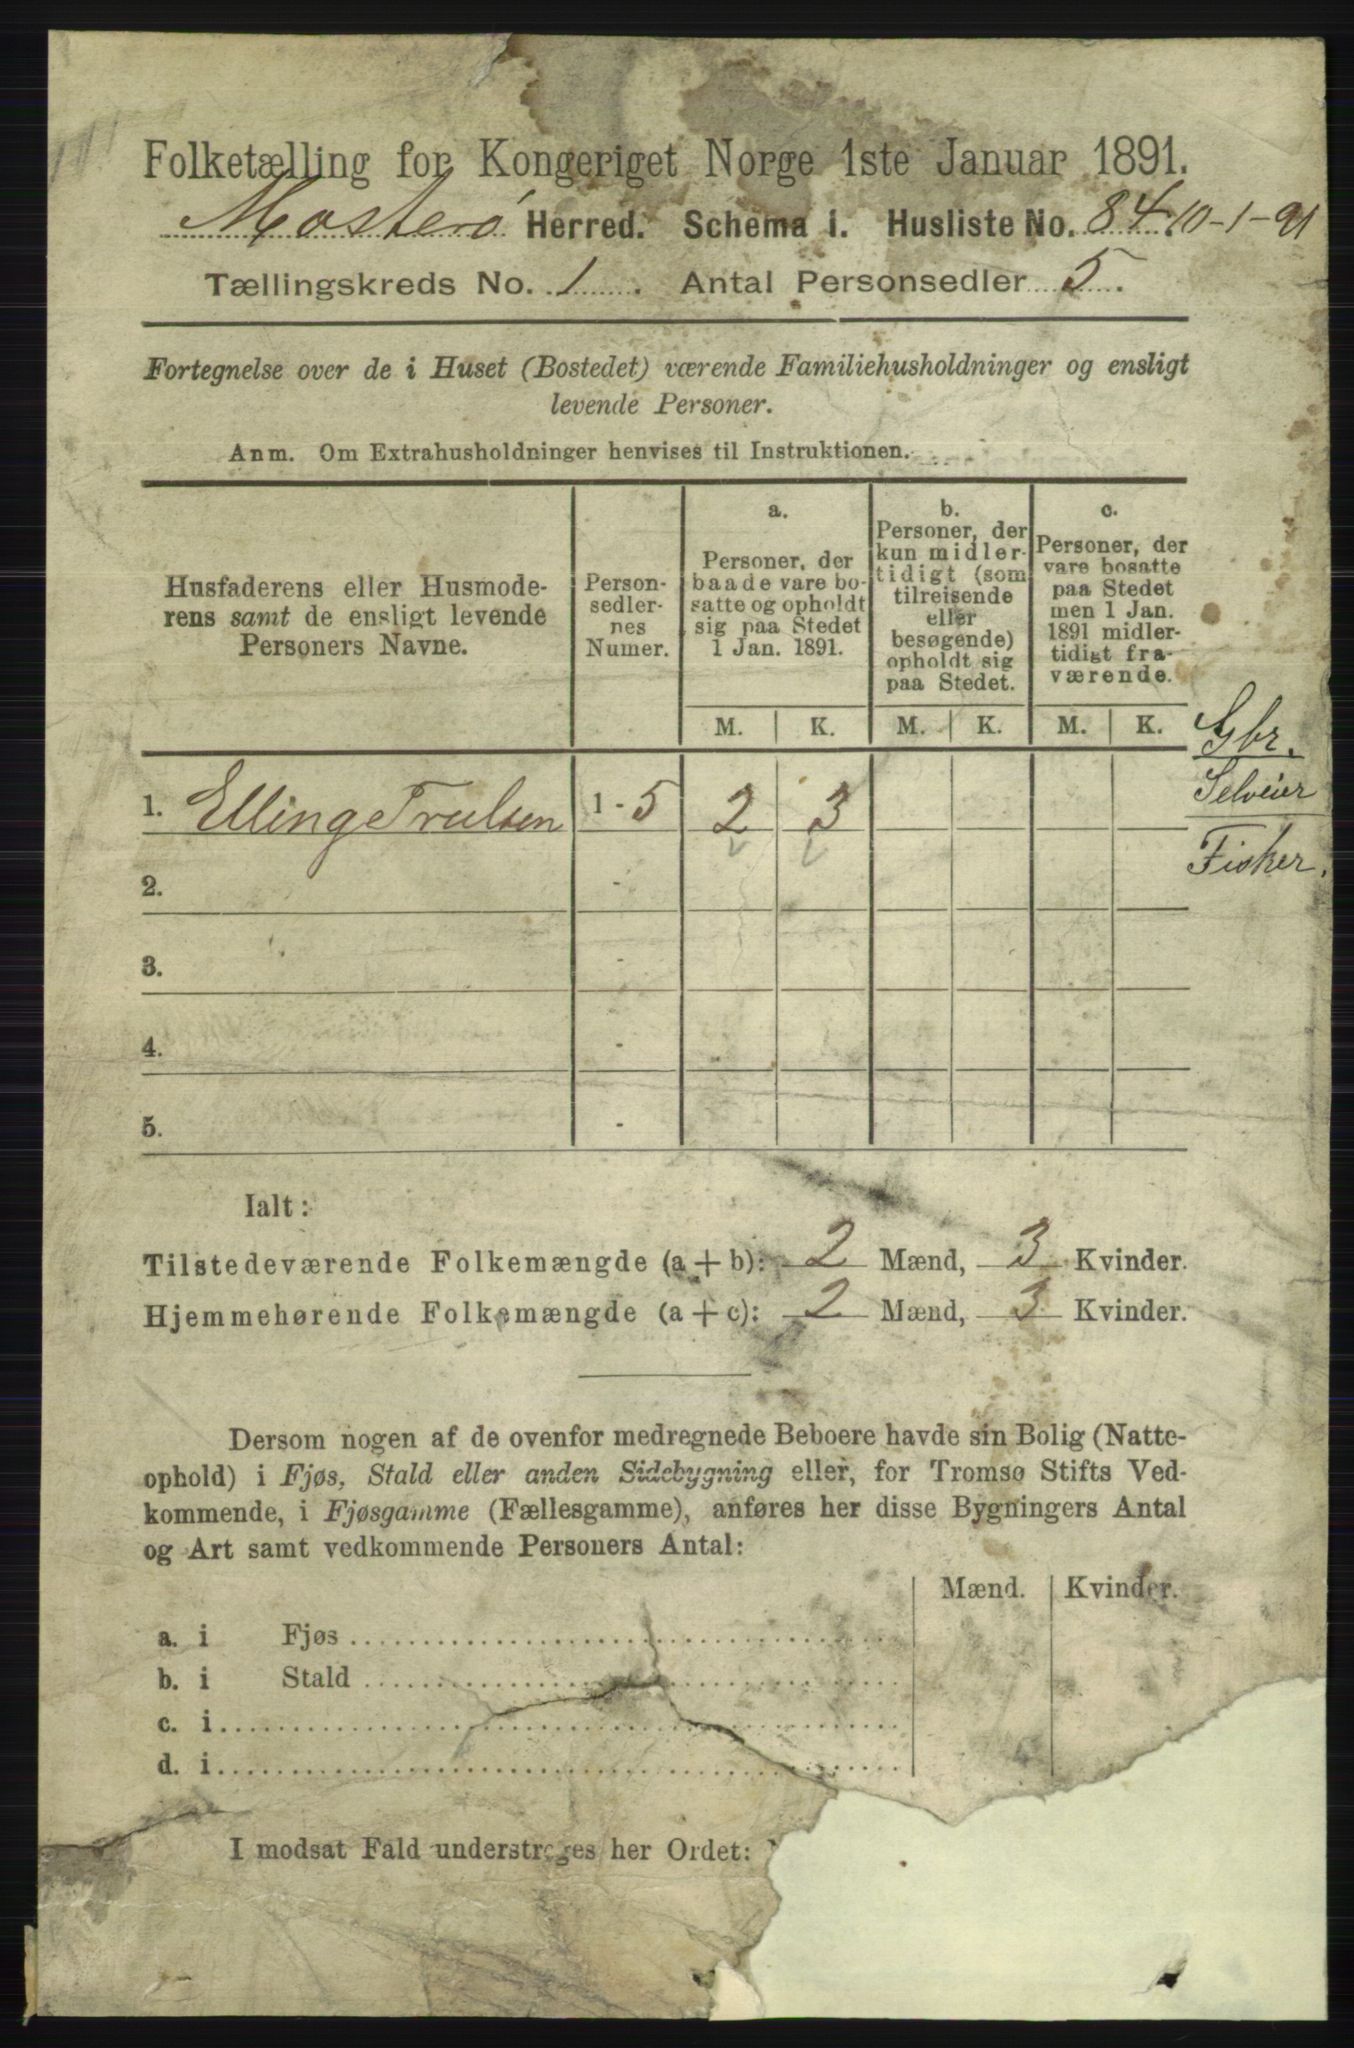 Folketælling for Kongeriget Norge 1ste Januar 1891.
Mosterø Herred. Schema I. Husliste No. 84. 10-1-91
Tællingskreds No. 1. Antal Personsedler 5.
Fortegnelse over de i Huset (Bostedet) værende Familiehusholdninger og ensligt
levende Personer.
Anm. Om Extrahusholdninger henvises til Instruktionen.
Husfaderens eller Husmode-
rens samt de ensligt levende
Personers Navne.
Person-
sedler-
nes
Numer.
a.
Personer, der
baade vare bo-
satte og opholdt
sig paa Stedet
1 Jan. 1891.
b.
Personer, der
kun midler-
tidigt (som
tilreisende
eller
besøgende)
opholdt sig
paa Stedet.
c.
Personer, der
vare bosatte
paa Stedet
men 1 Jan.
1891 midler-
tidigt fra-
værende.
M. K. M. K. M. K.
Gbr.
Selveier
Fisker.
1. Elling Trulsen 1-5 2 3
2. -
3. -
4. -
5. -
Ialt:
Tilstedeværende Folkemængde (a + b): 2 Mænd, 3 Kvinder.
Hjemmehørende Folkemængde (a + c): 2 Mænd, 3 Kvinder.
Dersom nogen af de ovenfor medregnede Beboere havde sin Bolig (Natte-
ophold) i Fjøs, Stald eller anden Sidebygning eller, for Tromsø Stifts Ved-
kommende, i Fjøsgamme (Fællesgamme), anføres her disse Bygningers Antal
og Art samt vedkommende Personers Antal:
Mænd. Kvinder.
a. i Fjøs
b. i Stald
c. i
d. i
I modsat Fald understreges her Ordet: